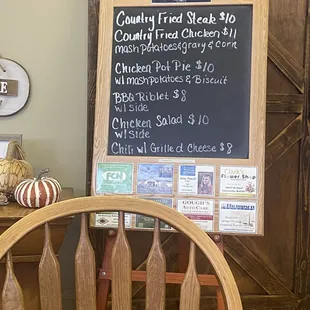 Country Fried Steak $10
Country Fried Chicken $11
mash potatoes & gravy & corn
Chicken Pot Pie $10
w/ mash potatoes & Biscuit
BBQ Riblet $8
w/ side
Chicken Salad $10
w/ side
Chili w/ Grilled Cheese $8
Flower Shop
GOUGH'S